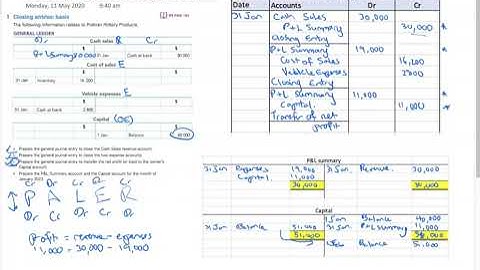 Monday, 11 May 2020 9:40 am
1 Closing entries basis
The following information relates to Potman Pottery Products.
GENERAL LEDGER
Cash sales R
Dr Cr
P+L Summary 30 000
31 Jan Cash at bank 30 000
Cost of sales E
31 Jan Inventory
Vehicle expenses E
31 Jan Cash at bank
Capital (OE)
1 Jan Balance 40 000
Prepare the general journal entry to close the Cash Sales revenue account.
Prepare the general journal entry to close the two expense accounts.
Prepare the general journal entry to transfer the net profit (or loss) to the owner's Capital account.
Prepare the P&L Summary account and the Capital account for the month of January
Cr Dr Cr Dr Cr
P A L E R
Dr Cr Dr Cr
profit = revenue - expenses
11,000 = 30,000 - 19,000
Date Accounts Dr Cr
31 Jan Cash Sales 30,000
P+L Summary 30,000
Closing Entry
P+L Summary 19,000
Cost of Sales
Vehicle Expenses
Closing Entry
P+L Summary 11,000
Capital. 11,000
Transfer of net
profit
P&L summary
31 Jan Expenses 19,000 31 Jan Revenue. 30,000
Capital. 11,000
30,000 30,000
Capital
1 Jan Balance 40,000
31 Jan Balance 51,000 31 Jan P+L Summary 11,000
51,000 51,000
1 Feb Balance 51,000